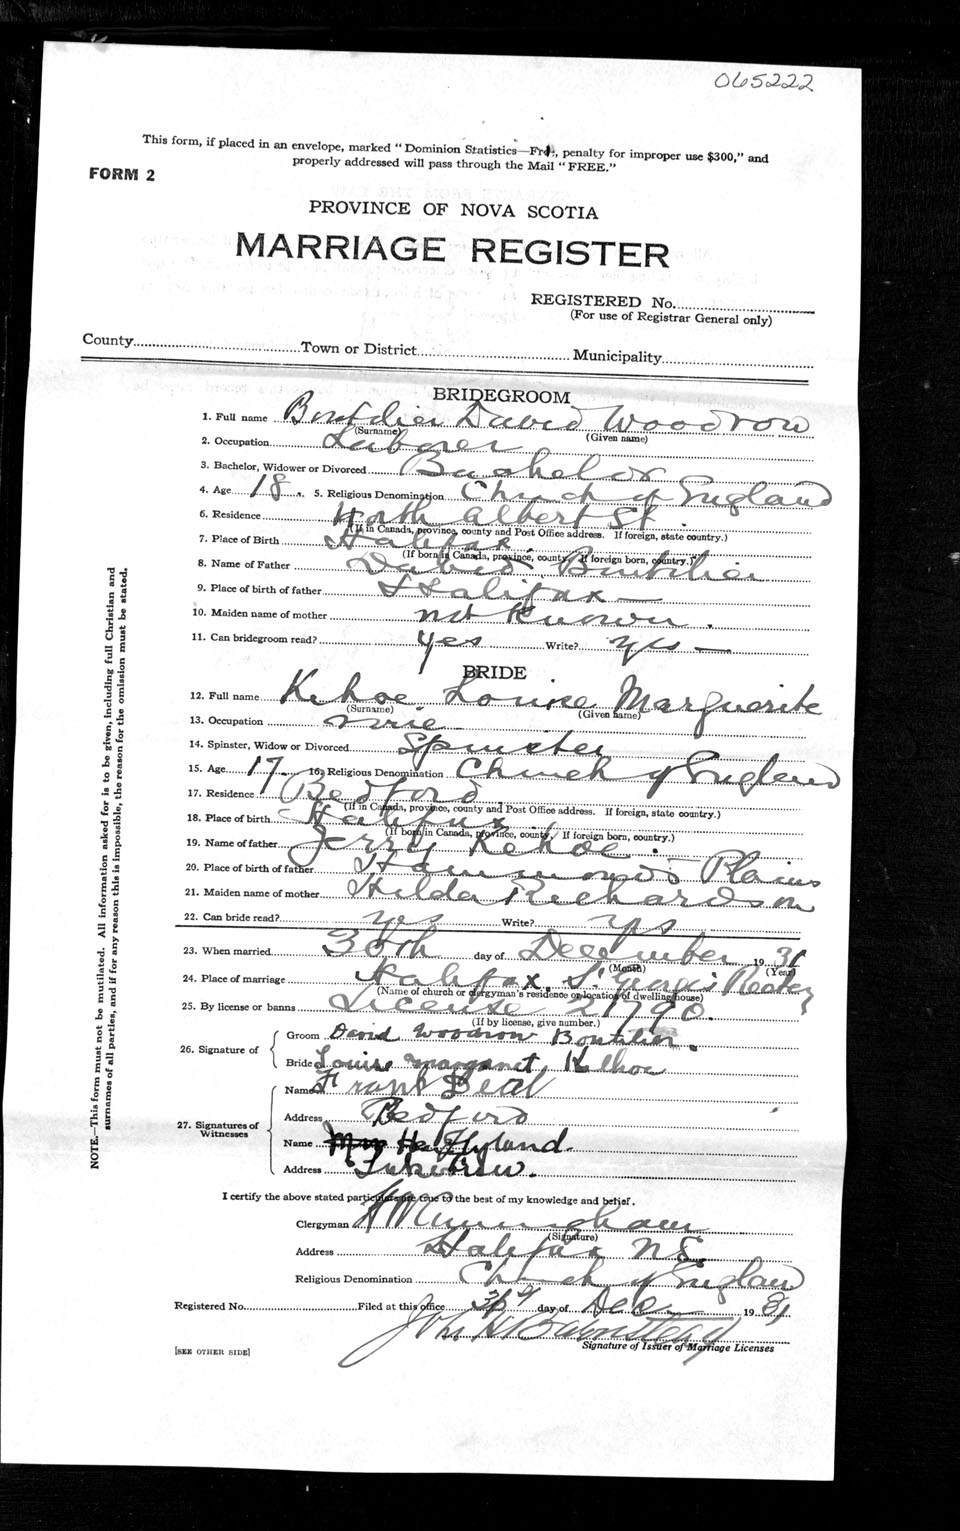 065222
This form, if placed in an envelope, marked "Dominion Statistics—Free, penalty for improper use $300," and
properly addressed will pass through the Mail "FREE."
FORM 2
PROVINCE OF NOVA SCOTIA
MARRIAGE REGISTER
REGISTERED No.
(For use of Registrar General only)
County Town or District Municipality
BRIDEGROOM
1. Full name Boutilier David Woodrow
(Surname) (Given name)
2. Occupation Laborer
3. Bachelor, Widower or Divorced Bachelor
4. Age 18 5. Religious Denomination Church of England
6. Residence North Albert St.
(If in Canada, province, county and Post Office address. If foreign, state country.)
7. Place of Birth Halifax
(If born in Canada, province, county. If foreign born, country.)
8. Name of Father David Boutilier
9. Place of birth of father Halifax
10. Maiden name of mother not known.
11. Can bridegroom read? yes Write? yes
BRIDE
12. Full name Kehoe Louise Marguerite
(Surname) (Given name)
13. Occupation
14. Spinster, Widow or Divorced Spinster
15. Age 17 16. Religious Denomination Church of England
17. Residence Bedford
(If in Canada, province, county and Post Office address. If foreign, state country.)
18. Place of birth Halifax
(If born in Canada, province, county. If foreign born, country.)
19. Name of father Jerry Kehoe.
20. Place of birth of father Hammonds Plains
21. Maiden name of mother Hilda Richardson
22. Can bride read? yes Write? yes
23. When married 30th day of December 1931
(Month) (Year)
24. Place of marriage Halifax, St. Georges Rectory
(Name of church or clergyman's residence or location of dwelling house)
25. By license or banns License 21790.
(If by license, give number.)
26. Signature of
Groom David Woodrow Boutilier.
Bride Louise Margaret Kelhoe
27. Signatures of
Witnesses
Name Frank Beal
Address Bedford
Name Hyland.
Address
I certify the above stated particulars are true to the best of my knowledge and belief.
Clergyman
(Signature)
Address Halifax N.S.
Religious Denomination Church of England
Registered No. Filed at this office day of Dec 1931
John
Signature of Issuer of Marriage Licenses
[SEE OTHER SIDE]
NOTE.—This form must not be mutilated. All information asked for is to be given, including full Christian and
surnames of all parties, and if for any reason this is impossible, the reason for the omission must be stated.